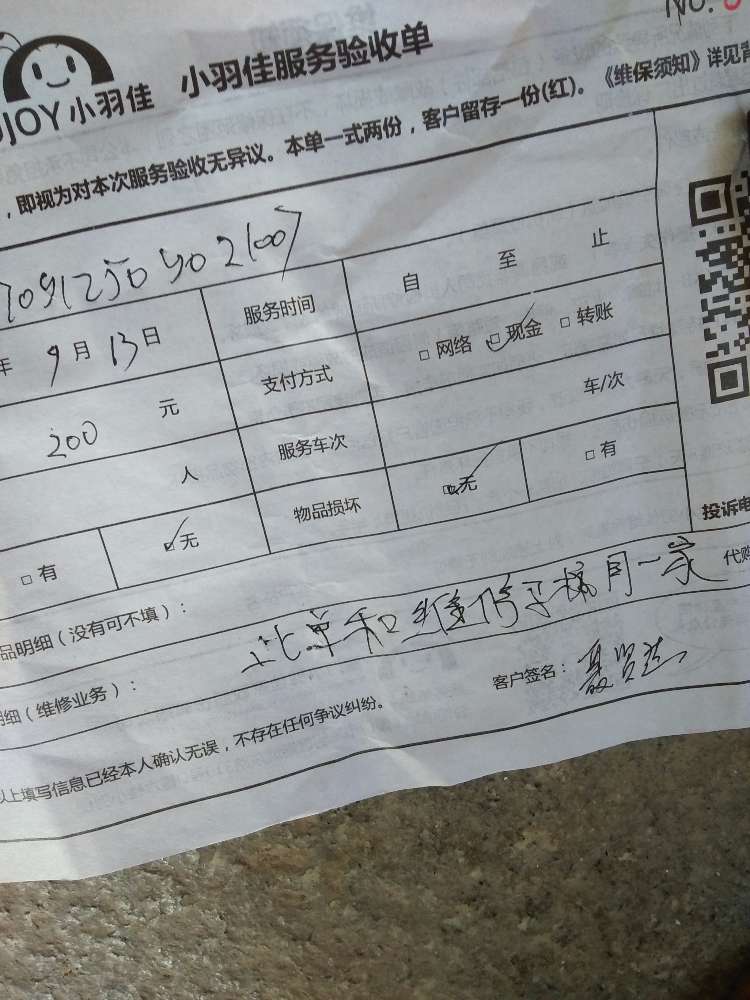 NO.
JOY小羽佳 小羽佳服务验收单
，即视为对本次服务验收无异议。本单一式两份，客户留存一份(红)。《维保须知》详见背
年 9 月 13 日 服务时间 自 至 止
200 元 支付方式 □ 网络 □ 现金 □ 转账
人 服务车次 车/次
□ 有 □ 无 物品损坏 □ 无 □ 有
投诉电
品明细（没有可不填）： 代购
此单和维修手梯同一家
明细（维修业务）：
客户签名：
以上填写信息已经本人确认无误，不存在任何争议纠纷。